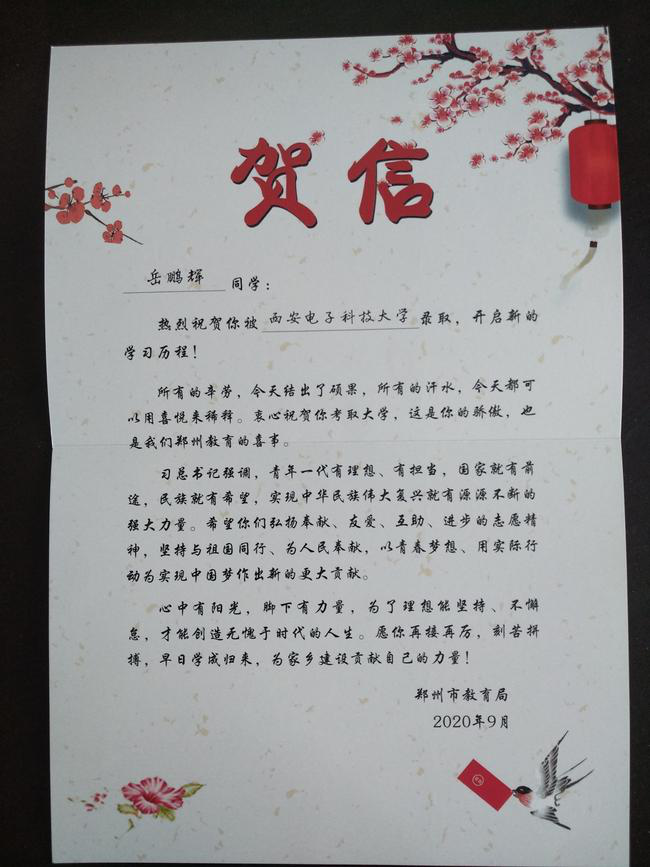 贺信
岳鹏辉 同学：
热烈祝贺你被 西安电子科技大学 录取，开启新的
学习历程！
所有的辛劳，今天结出了硕果，所有的汗水，今天都可
以用喜悦来稀释。衷心祝贺你考取大学，这是你的骄傲，也
是我们郑州教育的喜事。
习总书记强调，青年一代有理想、有担当，国家就有前
途，民族就有希望，实现中华民族伟大复兴就有源源不断的
强大力量。希望你们弘扬奉献、友爱、互助、进步的志愿精
神，坚持与祖国同行、为人民奉献，以青春梦想、用实际行
动为实现中国梦作出新的更大贡献。
心中有阳光，脚下有力量，为了理想能坚持、不懈
怠，才能创造无愧于时代的人生。愿你再接再厉，刻苦拼
搏，早日学成归来，为家乡建设贡献自己的力量！
郑州市教育局
2020年9月